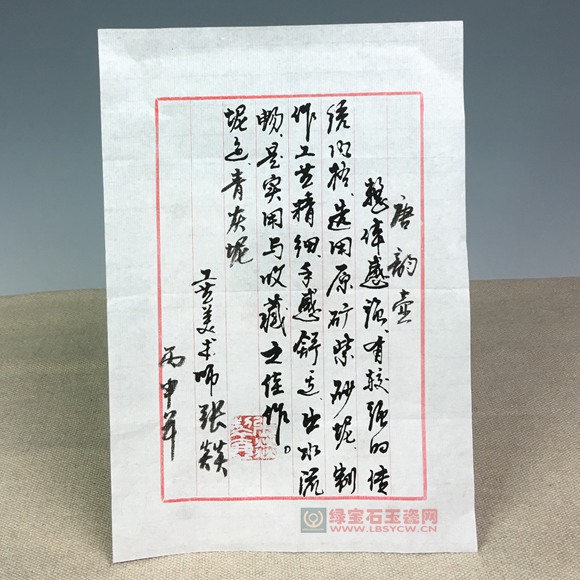 唐韵壶
整体感强、有较强的传
统风格、选用原矿紫砂坭、制
作工艺精细、手感舒适出水流
畅、是实用与收藏之佳作。
坭色、青灰坭
工艺美术师 张燚
丙申年
绿宝石玉瓷网
WWW.LBSYCW.CN